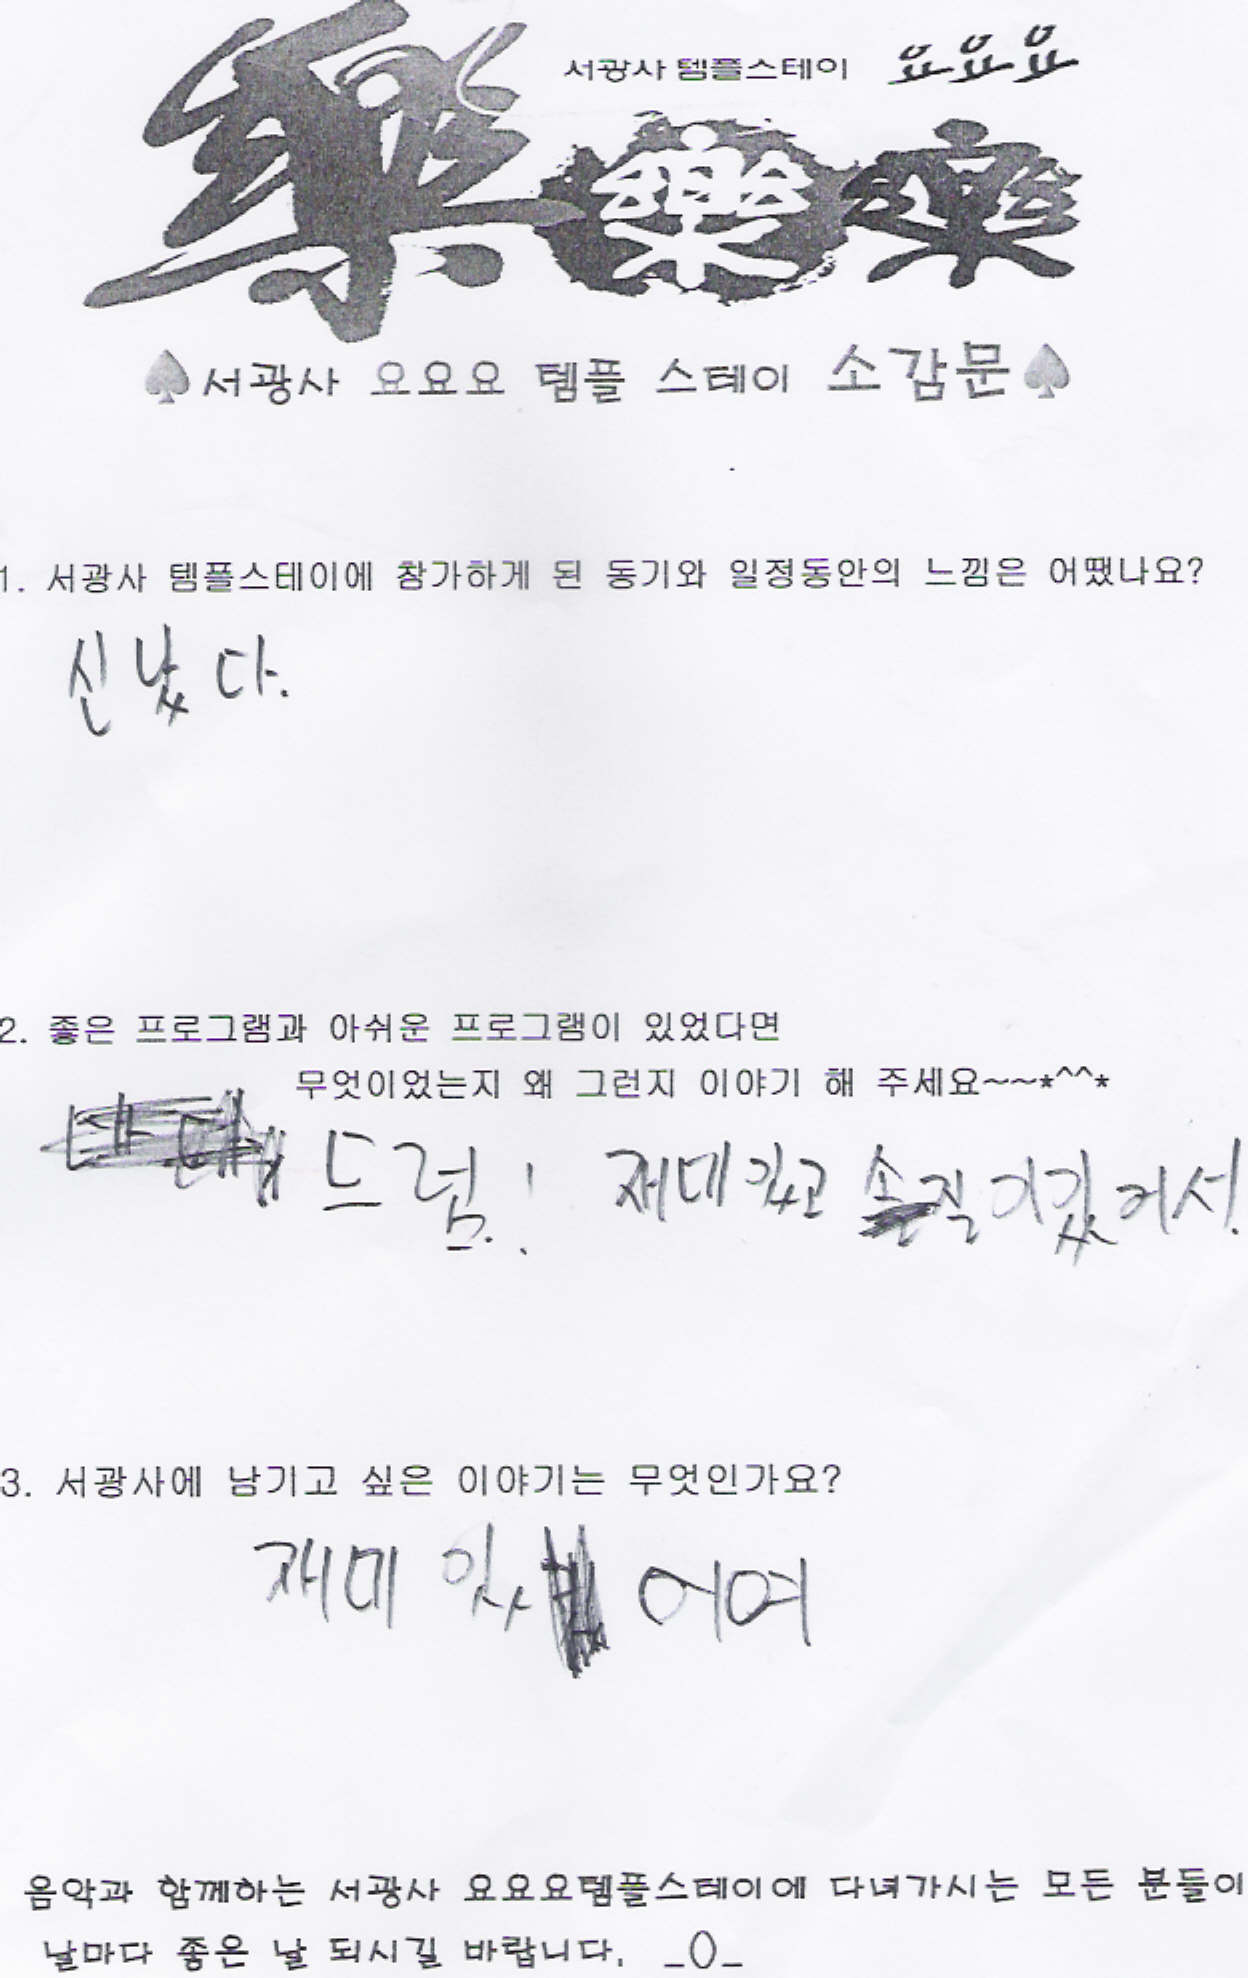 서광사 템플스테이 요요요
樂 樂 樂
♠서광사 요요요 템플 스테이 소감문♠
1. 서광사 템플스테이에 참가하게 된 동기와 일정동안의 느낌은 어땠나요?
신났다.
2. 좋은 프로그램과 아쉬운 프로그램이 있었다면
무엇이었는지 왜 그런지 이야기 해 주세요~~*^^*
드럼! 재미있고 솔직이있어서.
3. 서광사에 남기고 싶은 이야기는 무엇인가요?
재미 있어여
음악과 함께하는 서광사 요요요템플스테이에 다녀가시는 모든 분들이
날마다 좋은 날 되시길 바랍니다. _()_